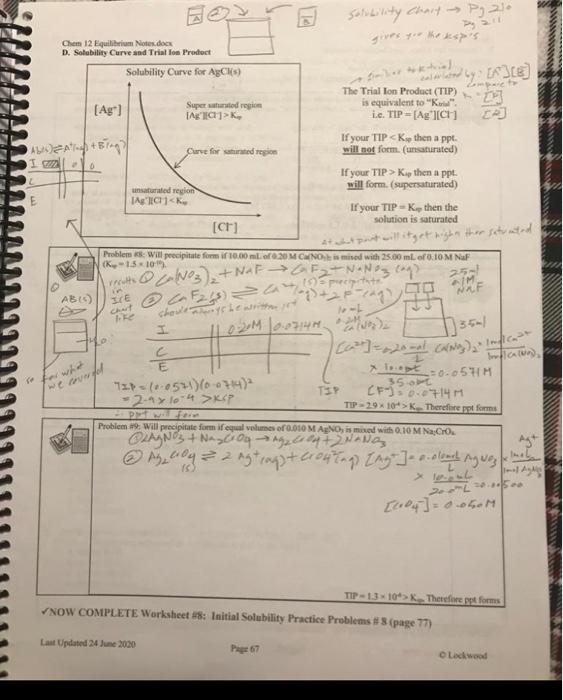 Solubility Chart → Pg 210
Pg 211
gives you the Ksp's
Chem 12 Equilibrium Notes.docx
D. Solubility Curve and Trial Ion Product
Solubility Curve for AgCl(s)
[Ag⁺]
Super saturated region
[Ag⁺][Cl⁻] > Ksp
Curve for saturated region
unsaturated region
[Ag⁺][Cl⁻] < Ksp
[Cl⁻]
calculated by: [A⁺][B]
compare to
The Trial Ion Product (TIP)
is equivalent to "Ktrial".
i.e. TIP = [Ag⁺][Cl⁻]
If your TIP < Ksp then a ppt.
will not form. (unsaturated)
If your TIP > Ksp then a ppt.
will form. (supersaturated)
If your TIP = Ksp then the
solution is saturated
AB(s) ⇌ A⁺(aq) + B⁻(aq)
I 0 0
C
E
at what point will it get higher than saturated
Problem #8: Will precipitate form if 10.00 mL of 0.20 M Ca(NO₃)₂ is mixed with 25.00 mL of 0.10 M NaF
(Ksp = 1.5 × 10⁻¹⁰).
① Ca(NO₃)₂ + NaF → CaF₂ + NaNO₃ (aq)
(s) = precipitate
② CaF₂(s) ⇌ Ca²⁺(aq) + 2F⁻(aq)
should always be written
in
ICE
chart
like
AB(s)
H₂O
so far what
we covered
25ml
0.1M
NaF
10ml
0.2M
Ca(NO₃)₂
35ml
I 0.20M 0.0714M
C
E
[Ca²⁺] = 0.20 mol Ca(NO₃)₂ × 1mol Ca²⁺
L 1mol Ca(NO₃)₂
× 10.0mL = 0.0571M
35.0mL
[F⁻] = 0.0714M
TIP = (0.0571)(0.0714)²
= 2.9×10⁻⁴ > Ksp
TIP
∴ ppt will form
TIP = 2.9 × 10⁻⁴ > Ksp Therefore ppt forms
Problem #9: Will precipitate form if equal volumes of 0.010 M AgNO₃ is mixed with 0.10 M Na₂CrO₄.
① 2AgNO₃ + Na₂CrO₄ → Ag₂CrO₄ + 2NaNO₃
② Ag₂CrO₄ ⇌ 2Ag⁺(aq) + CrO₄²⁻(aq) [Ag⁺] = 0.010mol AgNO₃ × 1mol Ag⁺
(s) L 1mol AgNO₃
× 10.0mL
20.0mL = 0.00500
[CrO₄⁻] = 0.050M
TIP = 1.3 × 10⁻⁶ > Ksp Therefore ppt forms
✓NOW COMPLETE Worksheet #8: Initial Solubility Practice Problems # 8 (page 77)
Last Updated 24 June 2020
Page 67
© Lockwood